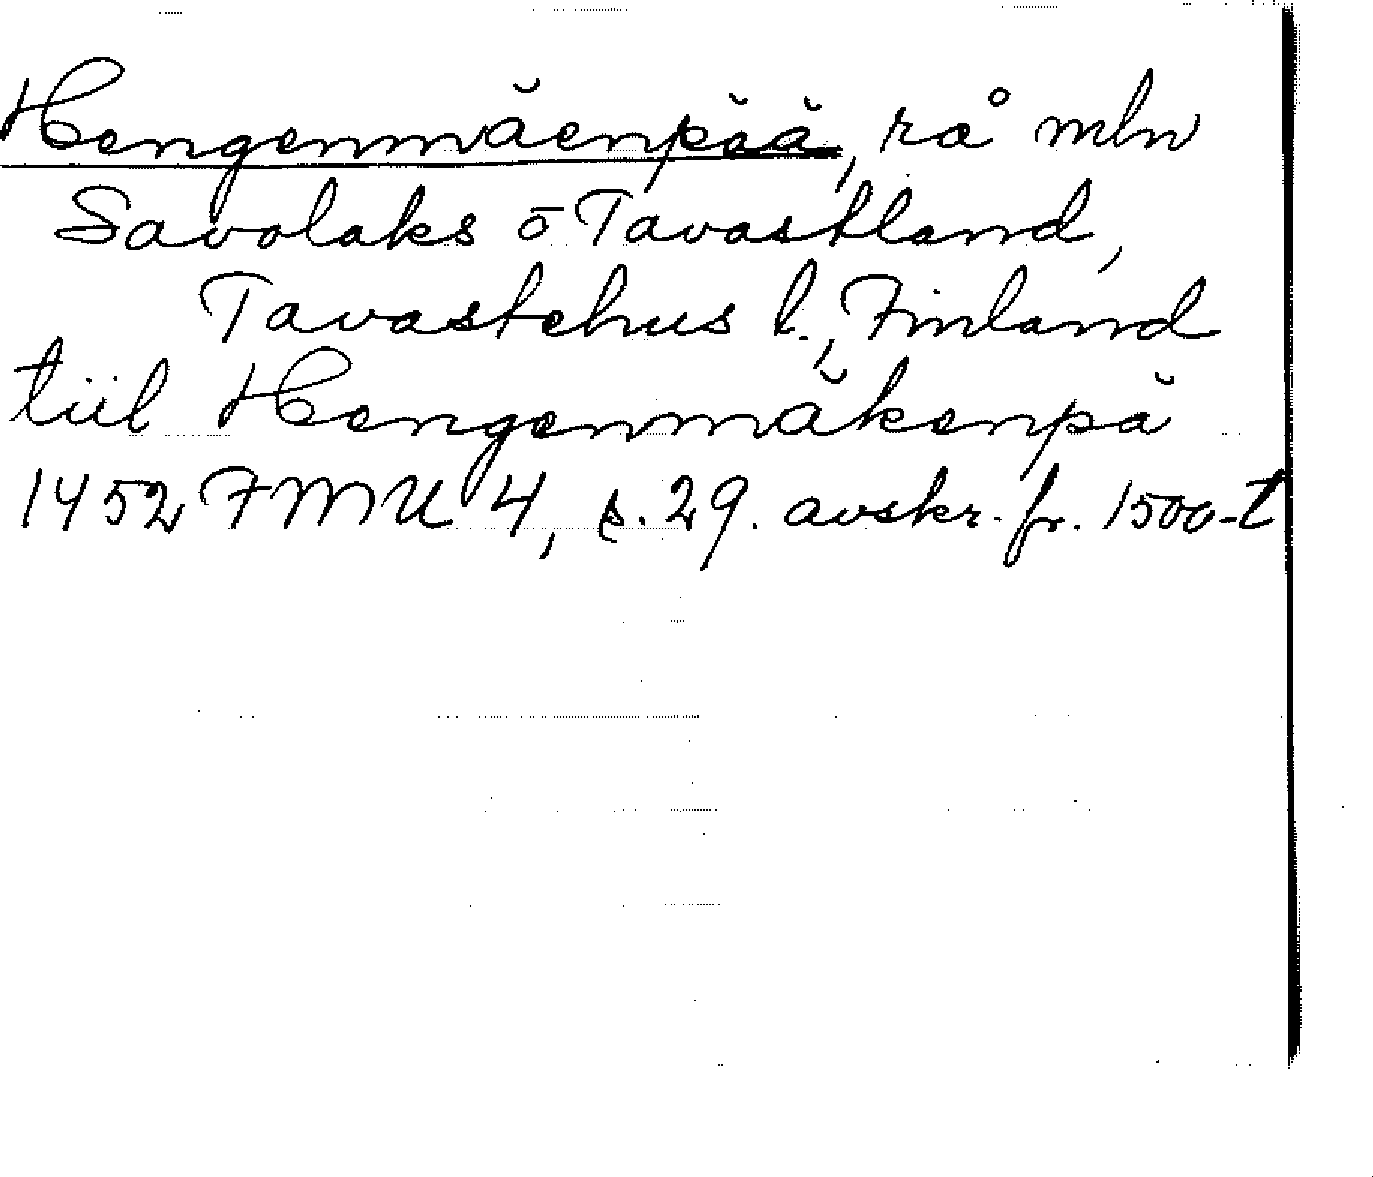 Hengenmäenpää, rå mln
Savolaks o Tavastland,
Tavastehus l., Finland
tiil Hengenmäkenpä
1452 FMU 4, s. 29. avskr. fr. 1500-t